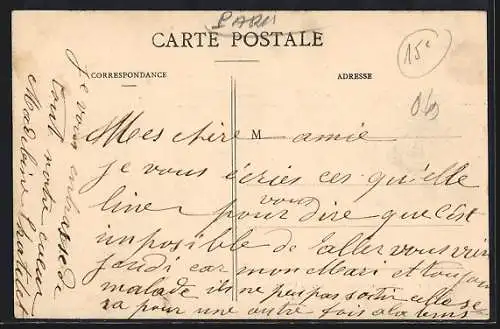 PARIS
CARTE POSTALE
15c
CORRESPONDANCE
ADRESSE
M
Mes chère amie
je vous écries ces qu'elle
line vous pour dire que c'est
imposible de l'aller vous voir
jeudi car mon Mari et toujour
malade ils ne peu pas sortir elle se
ra pour une autre fois
je vous embrasse de
tout notre cœur